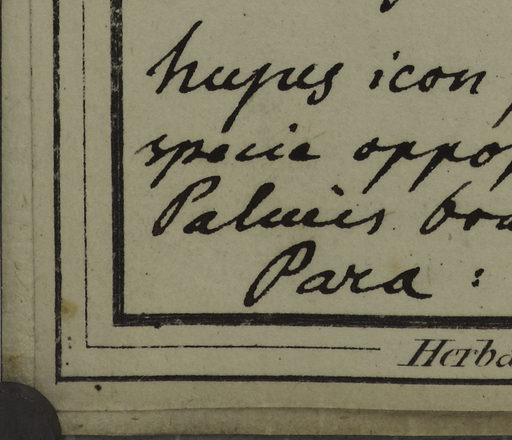 hujus icon
specie oppo
Palmis bo
Para :
Herba